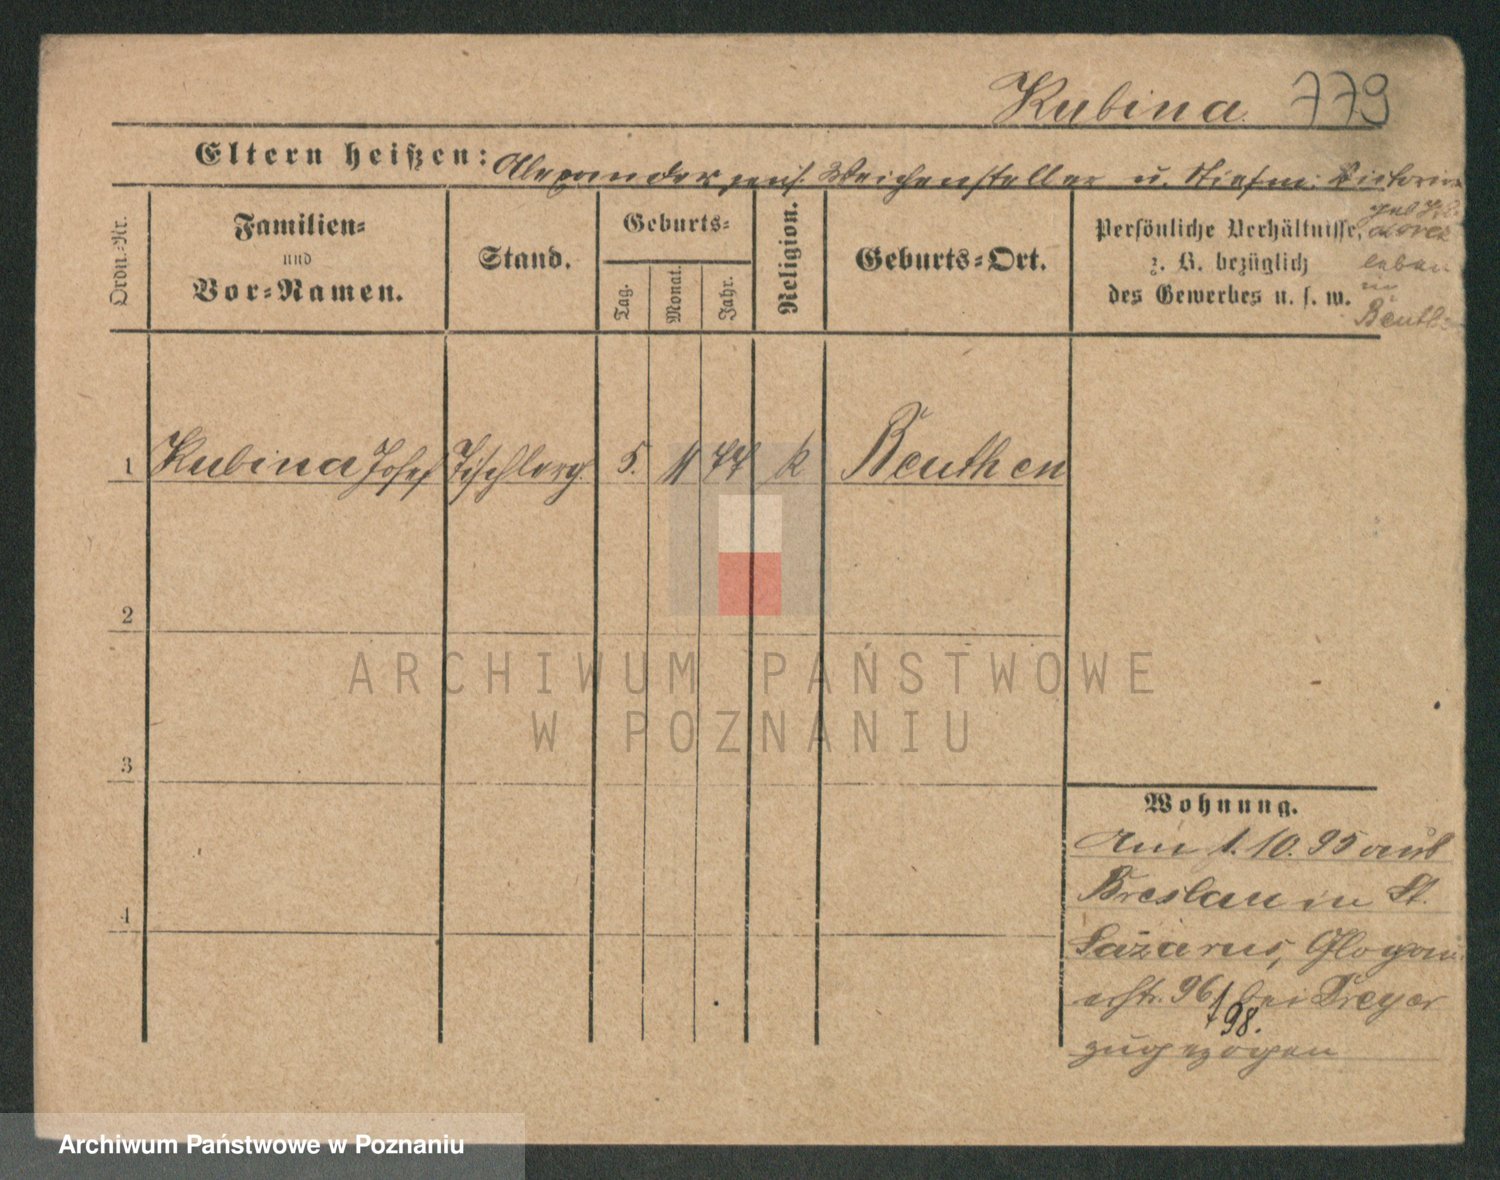 Kubina. 779
Eltern heißen: Alexander pens. Weichensteller u. Stiefm: Victoria
geb.
leben
in
Beuth
Ordn.-Nr.
Familien-
und
Vor-Namen.
Stand.
Geburts-
Tag.
Monat.
Jahr.
Religion.
Geburts-Ort.
Persönliche Verhältnisse,
z. B. bezüglich
des Gewerbes u. s. w.
1 Kubina Josef Tischlerg. 5. 11 77 k Beuthen
2
3
4
ARCHIWUM PAŃSTWOWE
W POZNANIU
Wohnung.
Am 1.10.95 aus
Breslau in St.
Lazarus, Glogau
erstr. 96 bei Dreyer
98.
zugezogen
Archiwum Państwowe w Poznaniu